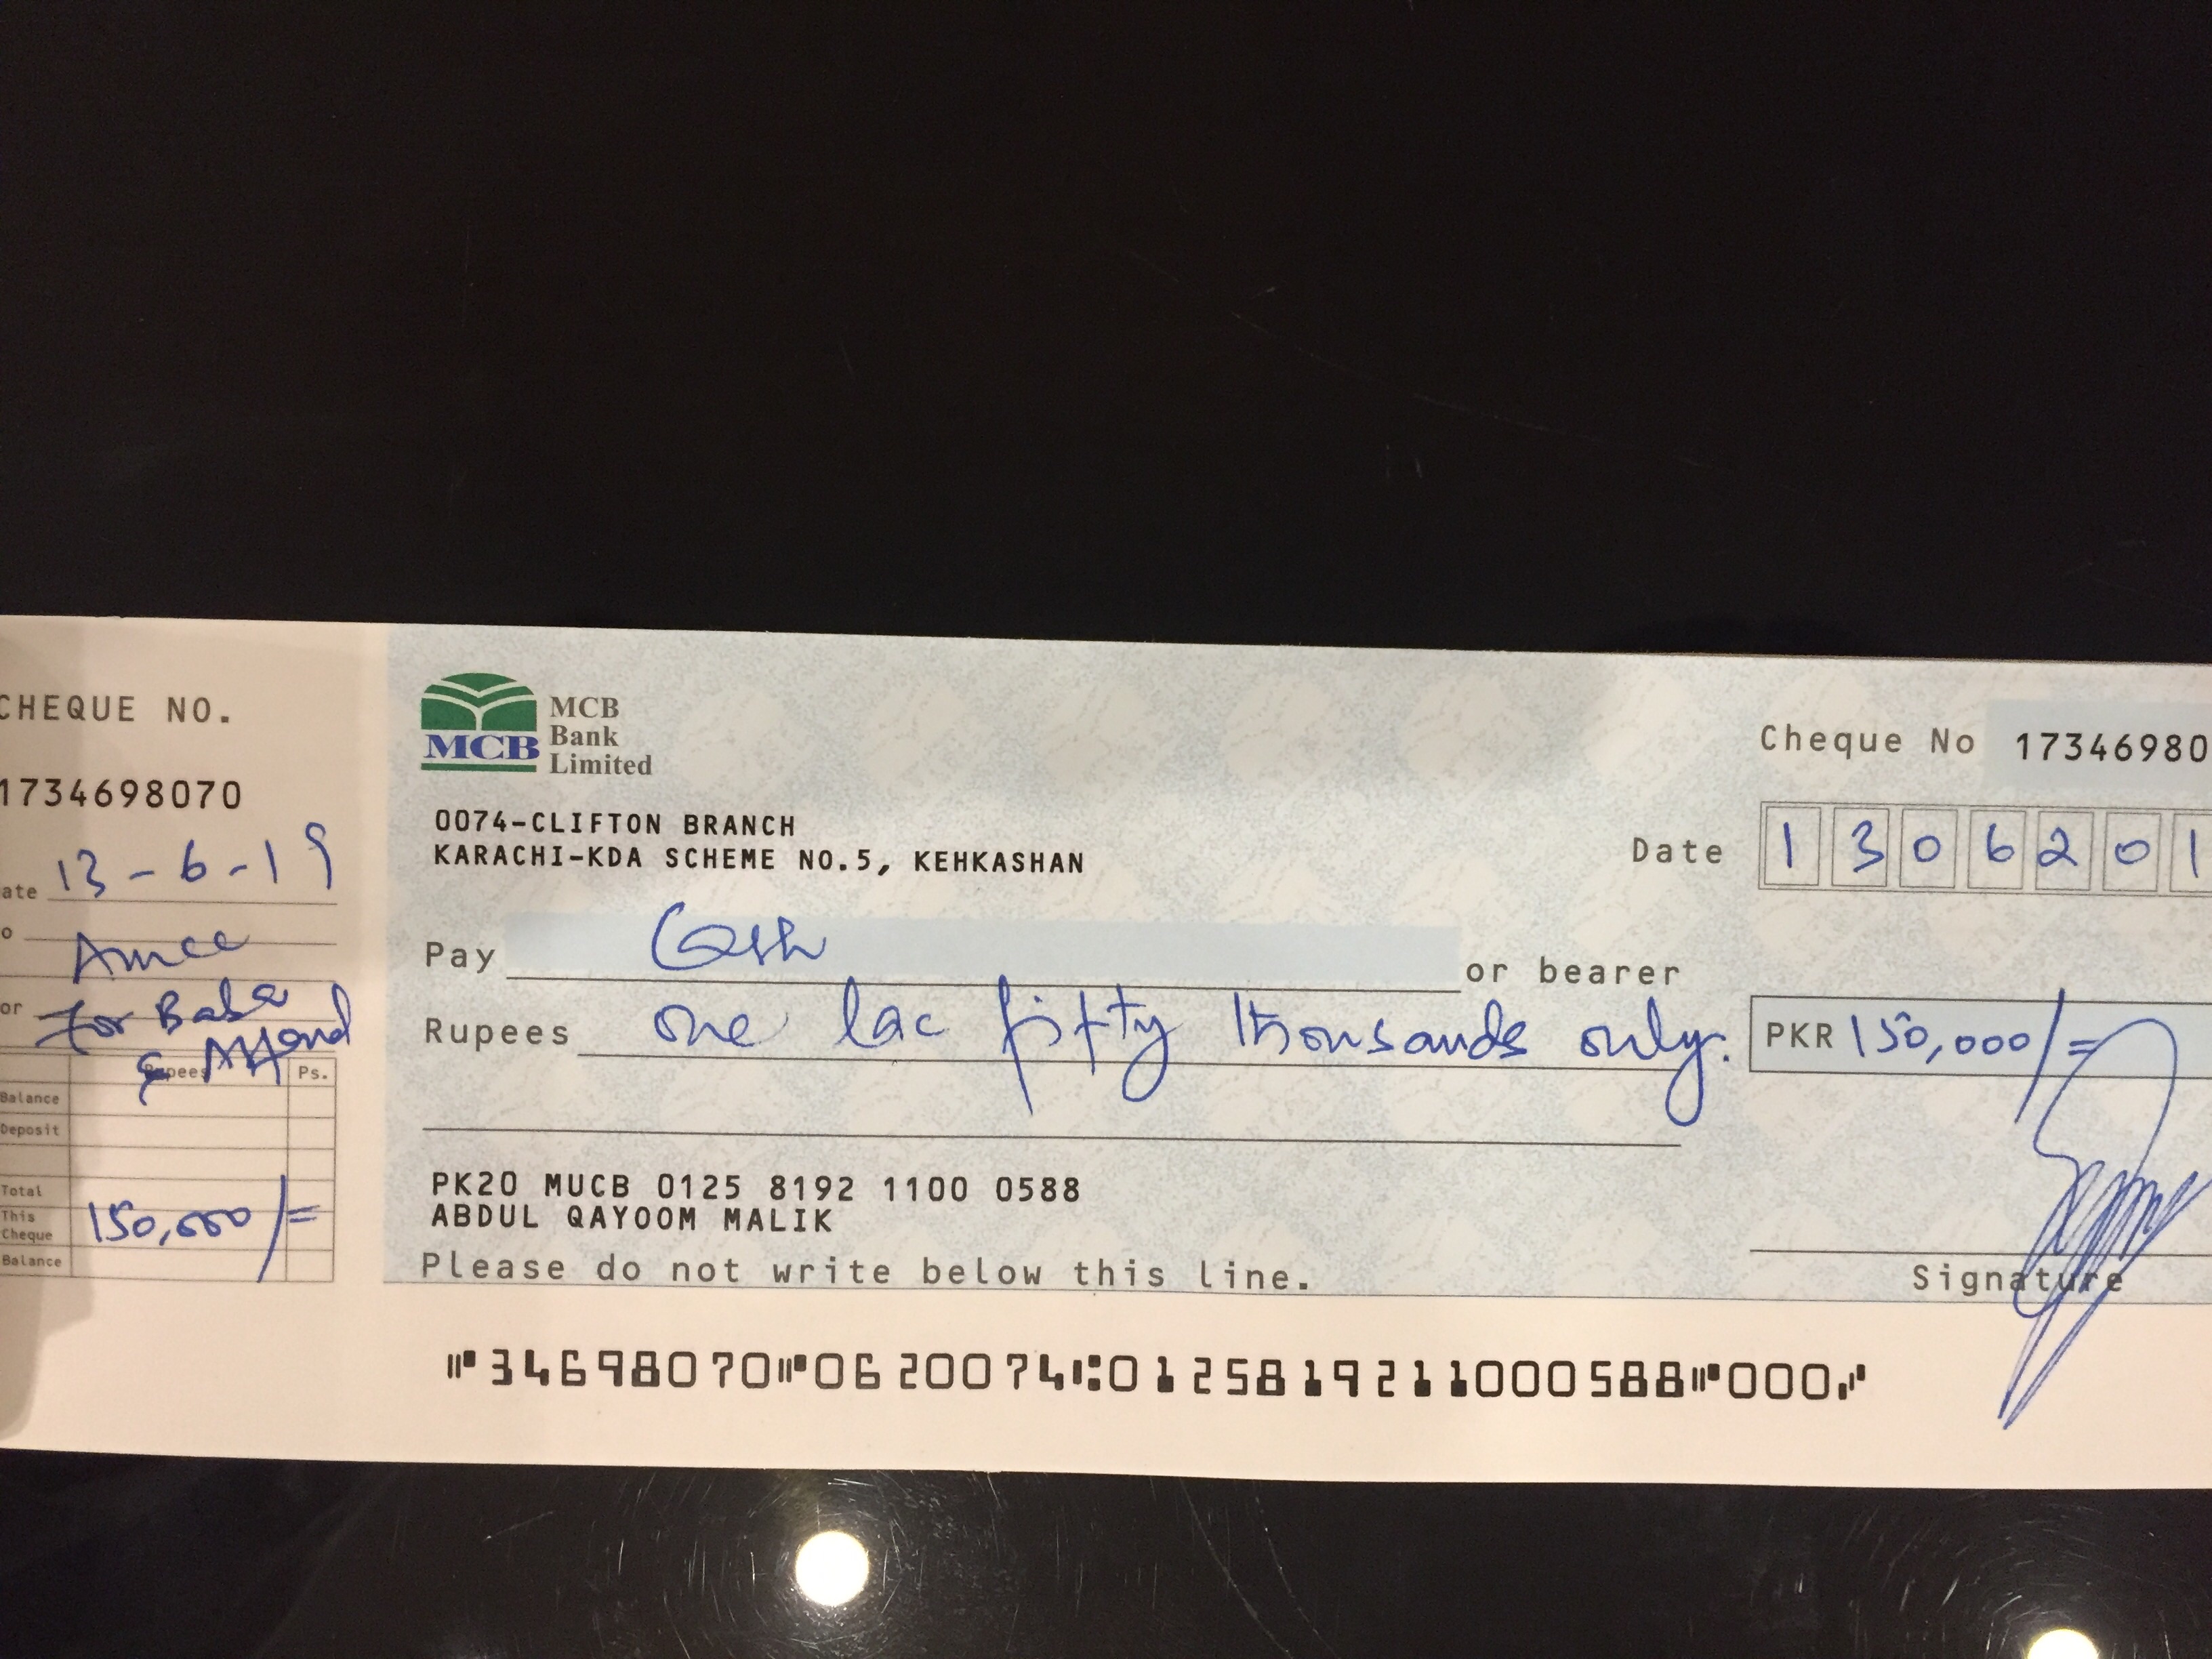 CHEQUE NO.
1734698070
ate 13-6-19
o
or for Baba
Rupees Ps.
Balance
Deposit
Total
This Cheque 150,000/=
Balance
MCB
MCB
Bank
Limited
0074-CLIFTON BRANCH
KARACHI-KDA SCHEME NO.5, KEHKASHAN
Cheque No 17346980
Date 1 3 0 6 2 0 1
Pay Cash or bearer
Rupees One lac fifty thousands only.
PKR 150,000/=
PK20 MUCB 0125 8192 1100 0588
ABDUL QAYOOM MALIK
Signature
Please do not write below this line.
⑈34698070⑈0620074⑆0125819211000588⑈000⑈